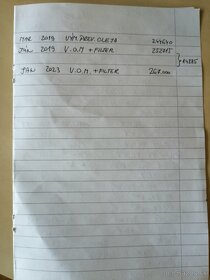 MAR 2019 VÝM. PREV. OLEJA 244640
JÚN 2019 V.O.M. + FILTER 252715
JAN 2023 V.O.M. + FILTER 267.000